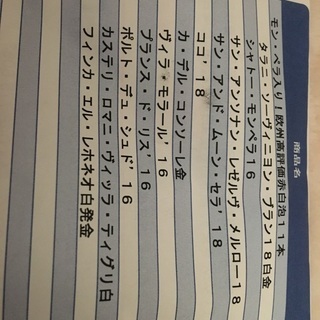 商品名
モン・ペラ入り！欧州高評価赤白泡11本
タラニ・ソーヴィニヨン・ブラン18白金
シャトー・モンペラ16
サン・アンソナン・レゼルヴ・メルロー18
サン・アンド・ムーン・セラ'18
ココ'18
カ・デル・コンソーレ金
ヴィラ・モラール'16
プランス・ド・リス'16
ポルト・デュ・シュド'16
カステリ・ロマニ・ヴィッラ・ティグリ白
フィンカ・エル・レホネオ白発金